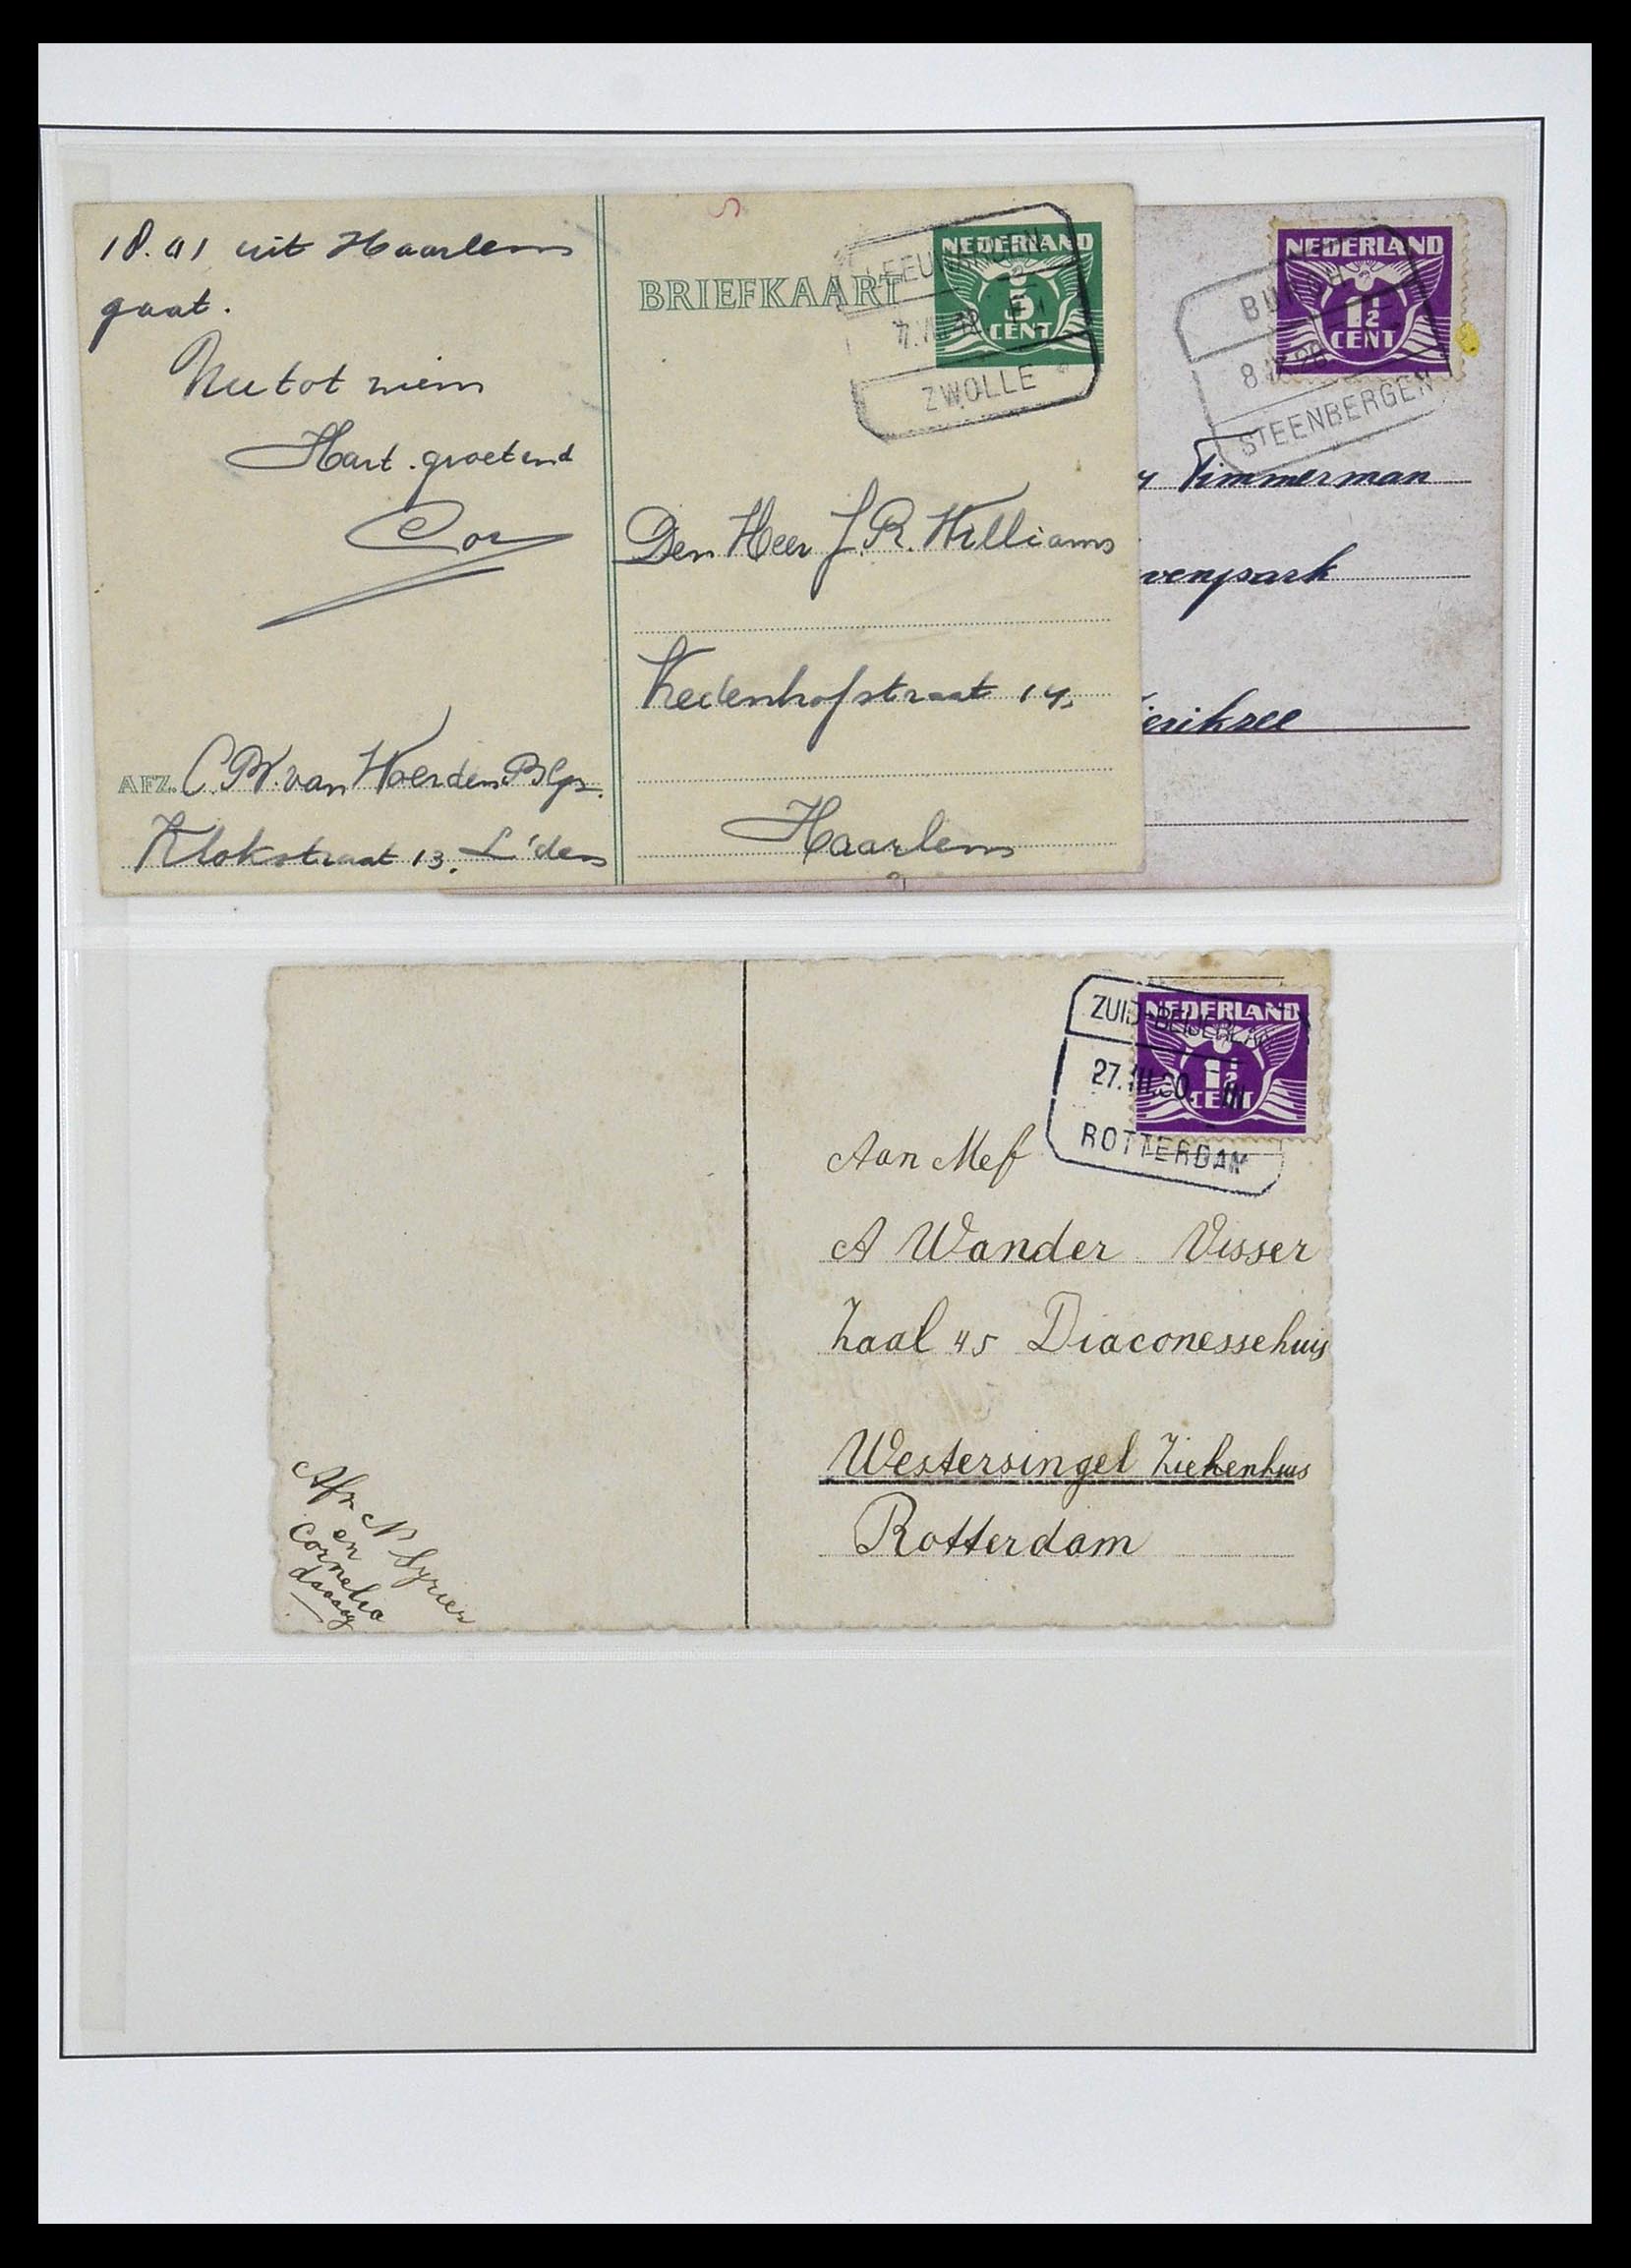 18.41 uit Haarlem
gaat.
Nu tot ziens
Hart. groetend
Cor
AFZ. C.W. van Woerden
Klokstraat 13. L'den
BRIEFKAART
NEDERLAND
5
CENT
LEEUWARDEN
ZWOLLE
Den Heer J.R. Williams
Kedenhofstraat 14,
Haarlem
NEDERLAND
1½
CENT
8
STEENBERGEN
Timmerman
venpark
ierikzee
NEDERLAND
1½
CENT
ZUID-BEIJERLAND
27.III.30. III
ROTTERDAM
Aan Mej
A Wander Visser
Zaal 45 Diaconessehuis
Westersingel Ziekenhuis
Rotterdam
Afz N Syrier
en
Cornelia